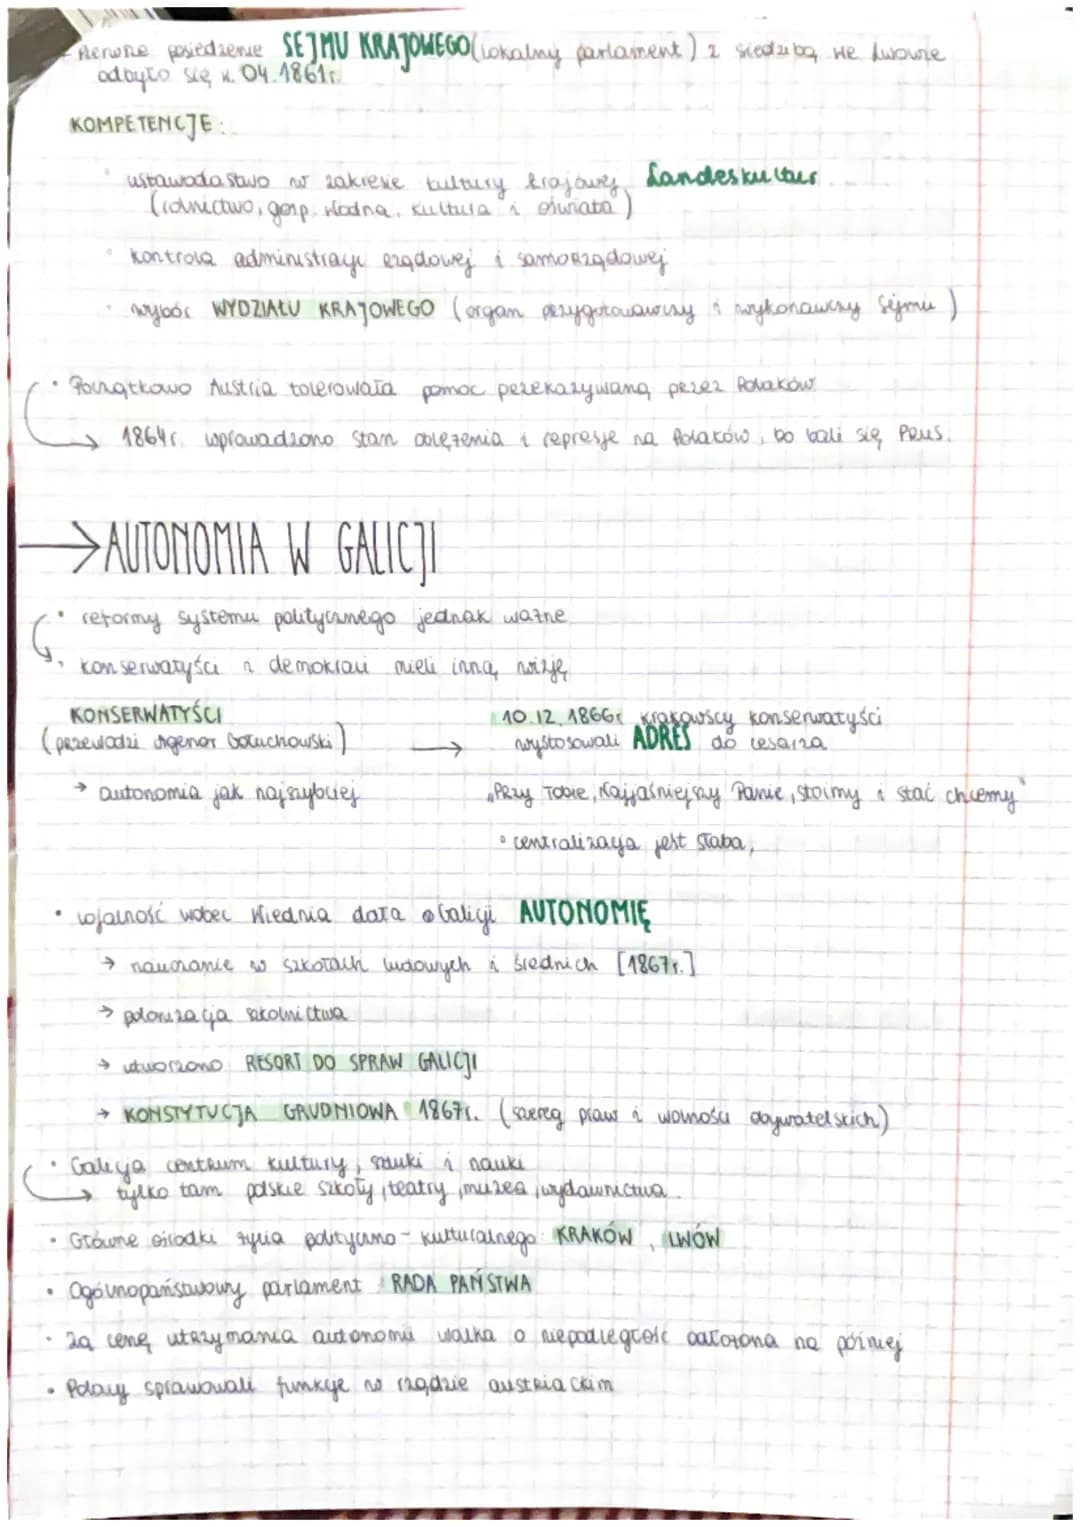 Pierwsze posiedzenie SEJMU KRAJOWEGO (lokalny parlament) z siedzibą we Lwowie
odbyło się w. 04.1861r.
KOMPETENCJE:
ustawodastwo w zakresie kultury krajowej Landeskultur
(rolnictwo, gosp. wodna, kultura i oświata)
kontrola administracji rządowej i samorządowej
wybór WYDZIAŁU KRAJOWEGO (organ przygotowawczy i wykonawczy Sejmu)
• Początkowo Austria tolerowała pomoc przekazywaną przez Polaków
→ 1864r. wprowadzono stan oblężenia i represje na Polaków, bo bali się Prus.
→ AUTONOMIA W GALICJI
• reformy systemu politycznego jednak ważne
• konserwatyści i demokraci mieli inną wizję
KONSERWATYŚCI
(przewodzi Agenor Gołuchowski) →
→ autonomia jak najszybciej
10.12.1866r krakowscy konserwatyści
wystosowali ADRES do cesarza
„Przy Tobie, Najjaśniejszy Panie, stoimy i stać chcemy"
• centralizacja jest słaba,
• lojalność wobec Wiednia dała Galicji AUTONOMIĘ
→ nauczanie w szkołach ludowych i średnich [1867r.]
→ polonizacja szkolnictwa
→ utworzono RESORT DO SPRAW GALICJI
→ KONSTYTUCJA GRUDNIOWA 1867r. (szereg praw i wolności obywatelskich)
• Galicja centrum kultury, sztuki i nauki
→ tylko tam polskie szkoły, teatry, muzea, wydawnictwa
• Główne ośrodki życia polityczno-kulturalnego: KRAKÓW, LWÓW
• Ogólnopaństwowy parlament: RADA PAŃSTWA
• za cenę utrzymania autonomii walka o niepodległość odłożona na później
• Polacy sprawowali funkcje w rządzie austriackim